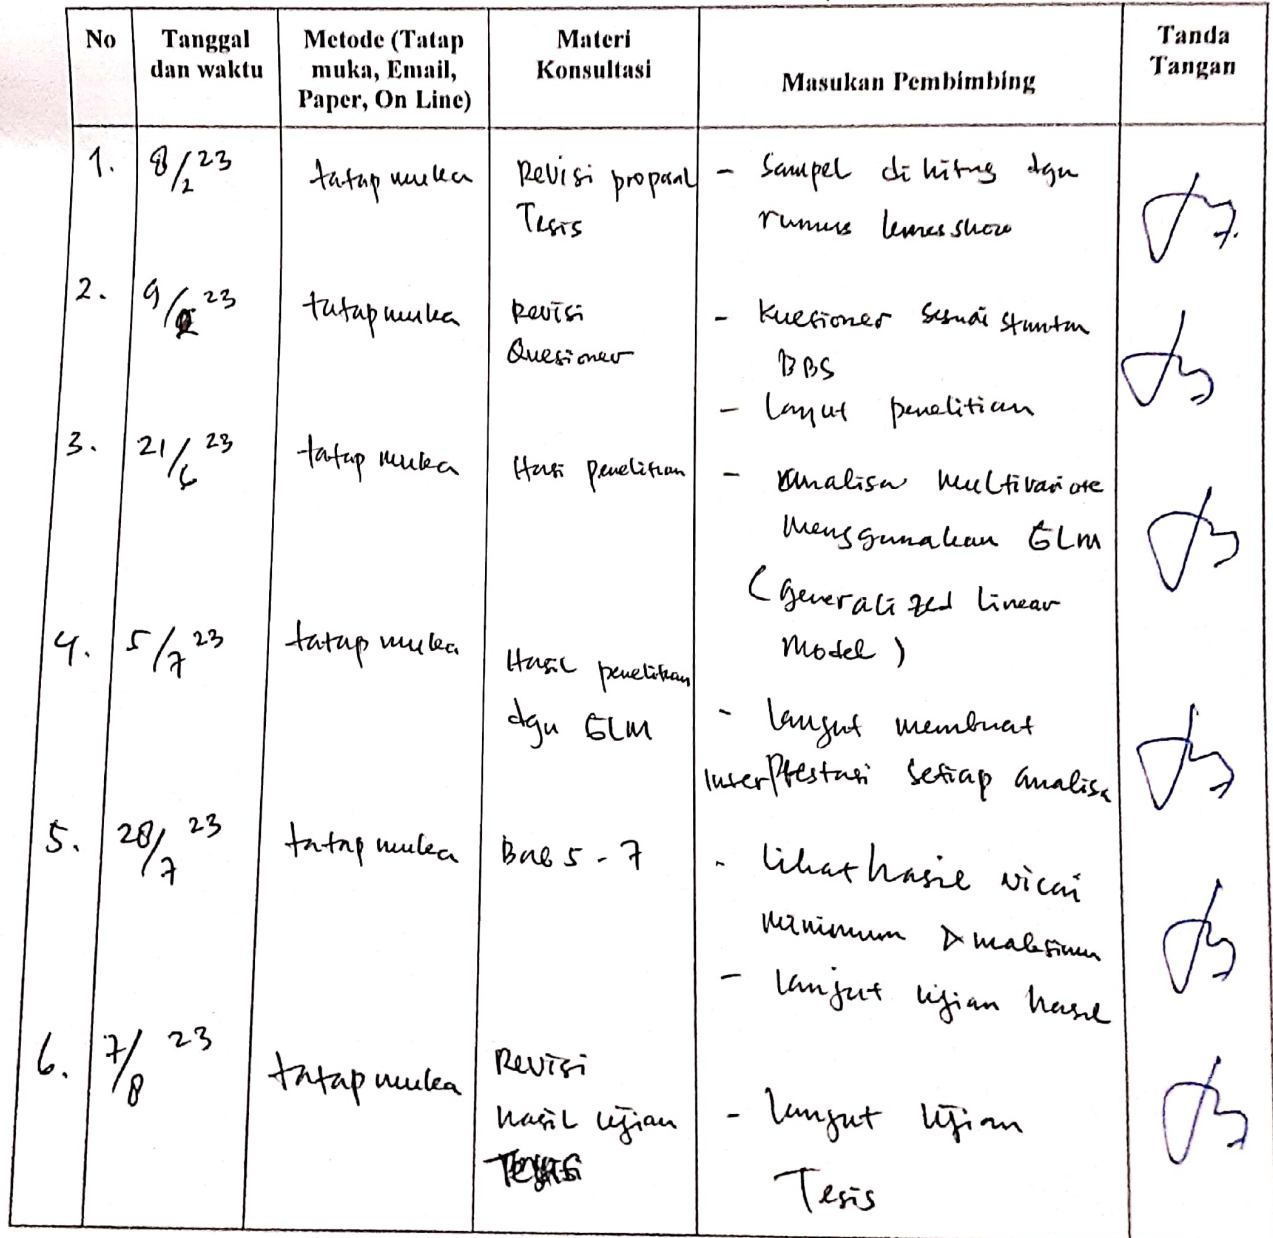 No Tanggal dan waktu Metode (Tatap muka, Email, Paper, On Line) Materi Konsultasi Masukan Pembimbing Tanda Tangan
1. 8/2 23 tatap muka Revisi proposal - Sampel dihitung dgn
Tesis rumus lemeshow
2. 9/2 23 tatap muka Revisi - Kuesioner sesuai
Quesioner BBS
- lanjut penelitian
3. 21/6 23 tatap muka Hasi penelitian - analisa multivariate
menggunakan GLM
(generalized linear
Model)
4. 5/7 23 tatap muka Hasil penelitian
dgn GLM - lanjut membuat
setiap analisa
5. 28/7 23 tatap muka Bab 5 - 7 - lihat hasil nilai
minimum & maksimum
- lanjut ujian hasil
6. 7/8 23 tatap muka Revisi
hasil ujian - lanjut ujian
Tesis